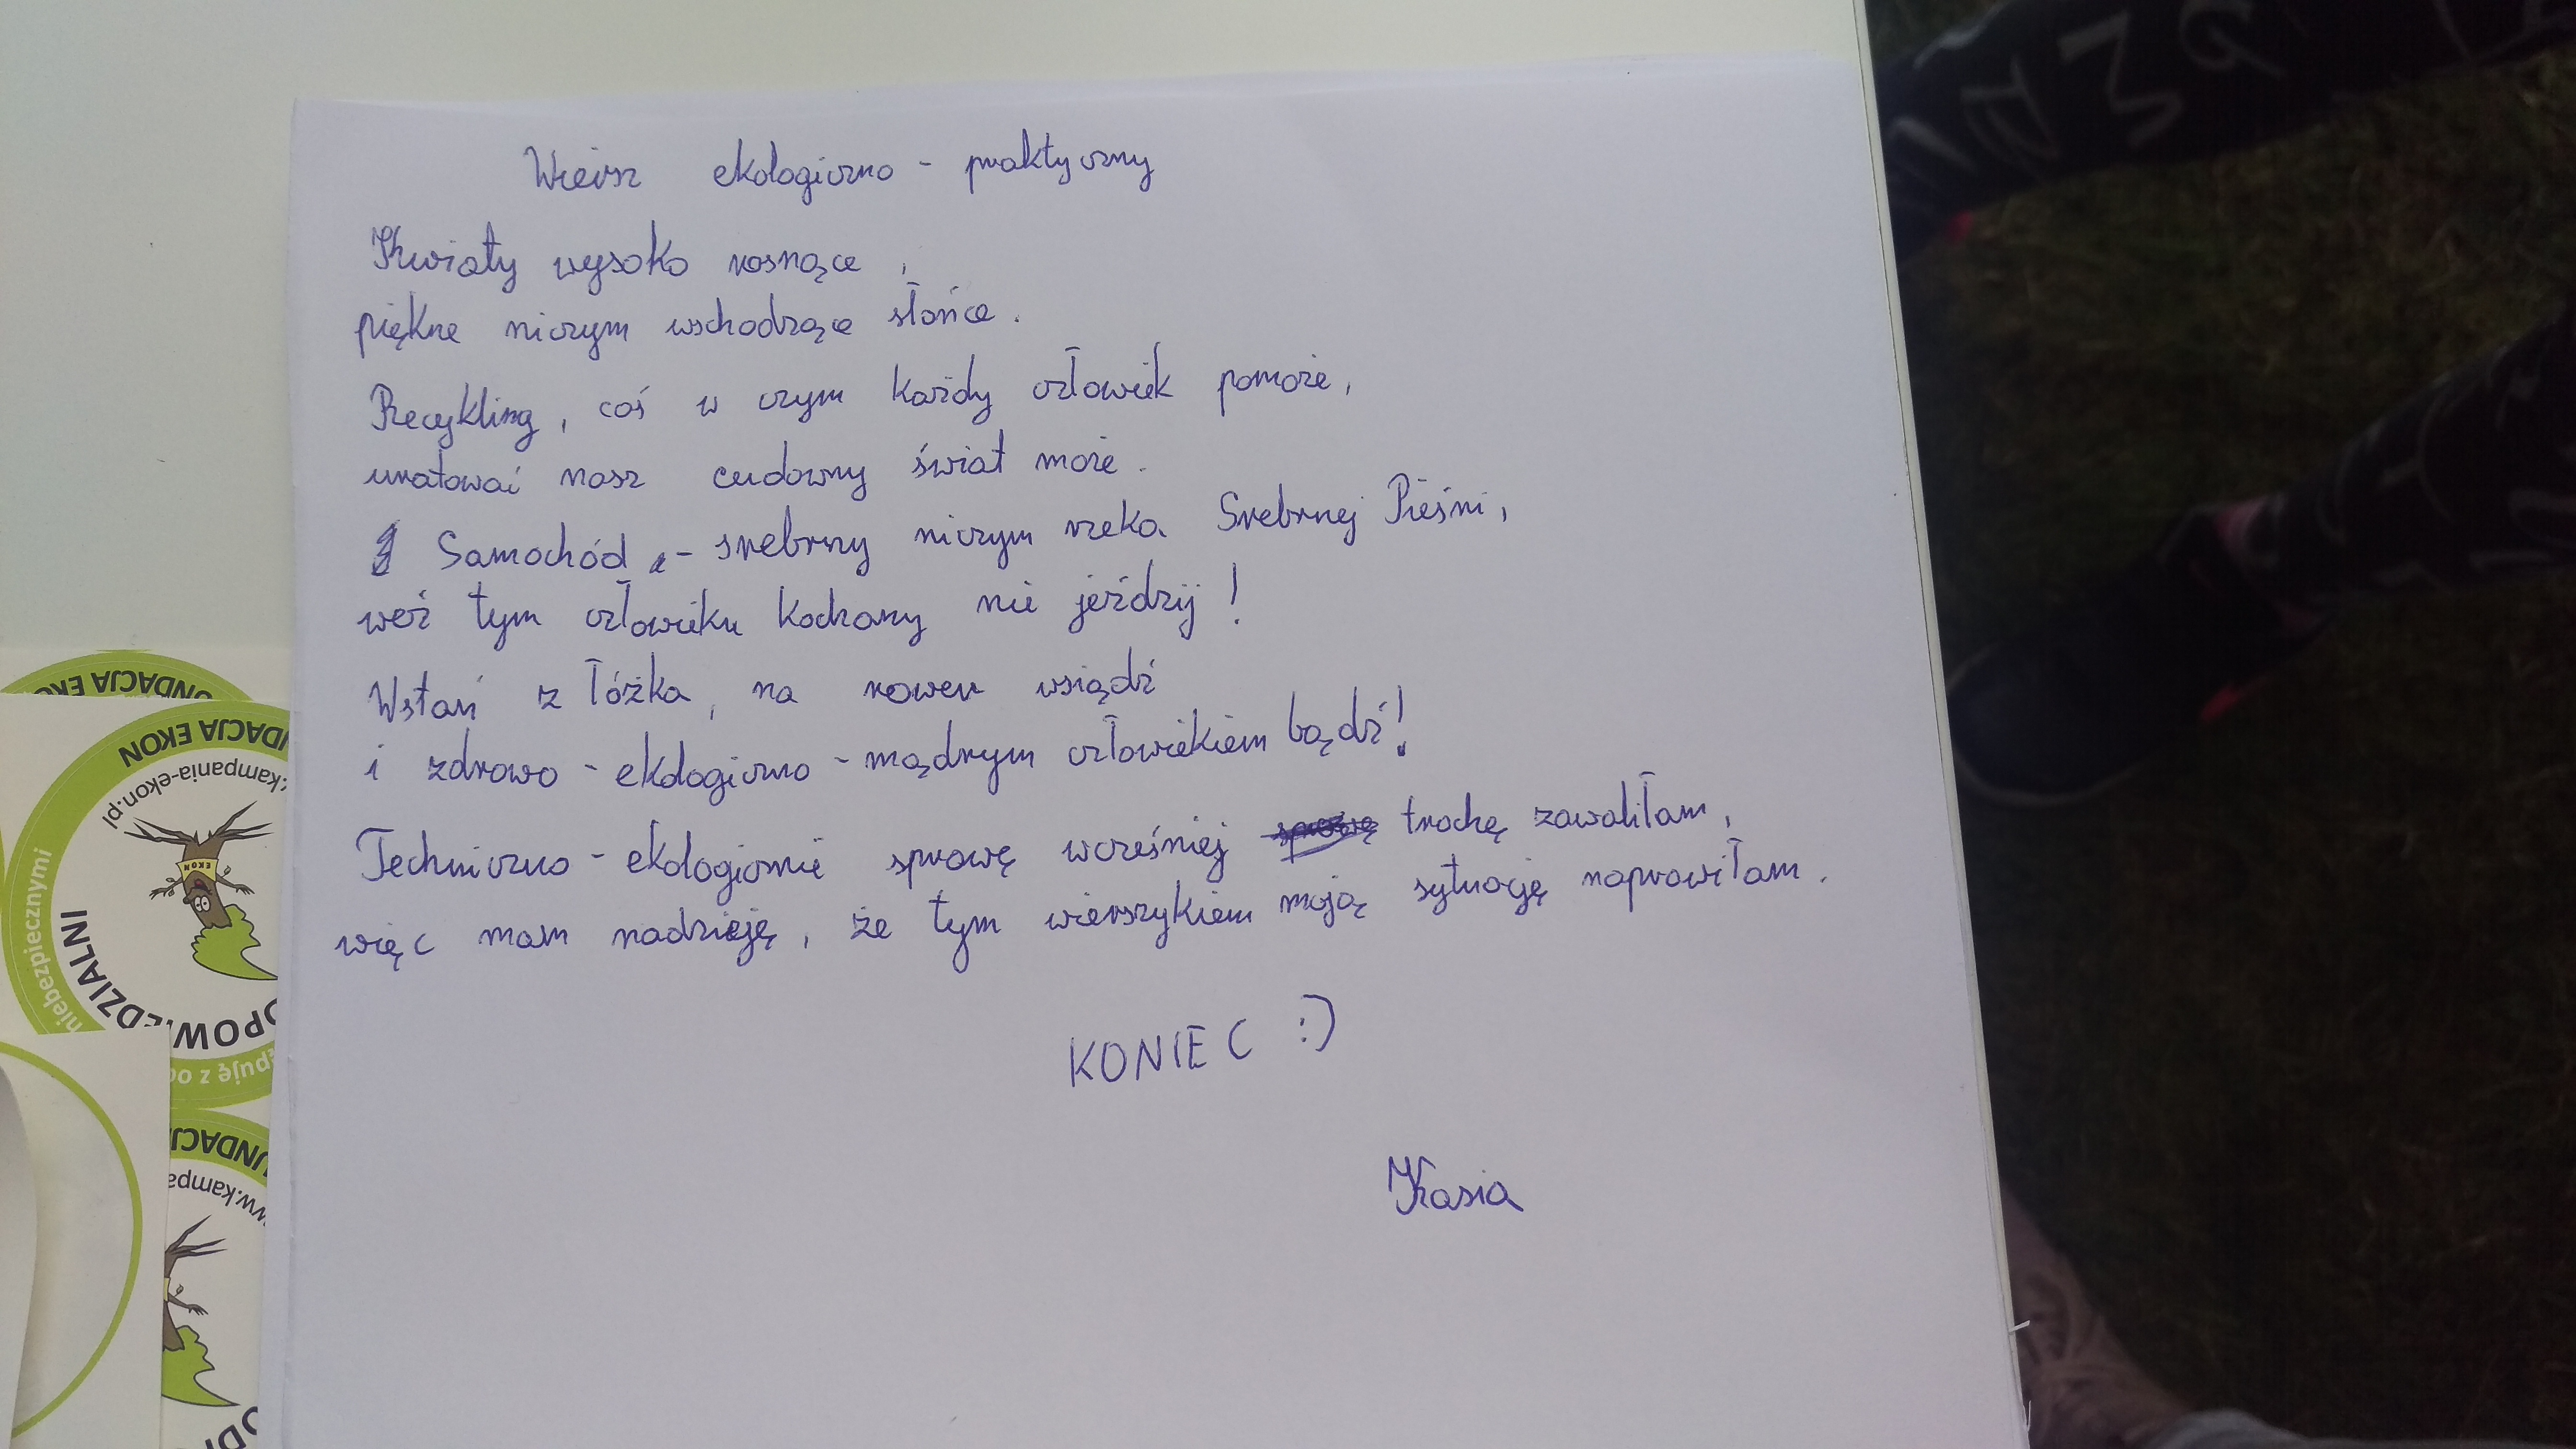 Wiersz ekologiczno - praktyczny
Kwiaty wysoko rosnące,
piękne niczym wschodzące słońce.
Recykling, coś w czym każdy człowiek pomoże,
uratować nasz cudowny świat może.
Samochód - srebrny niczym rzeka Srebrnej Pieśni,
weź tym człowieku kochany nie jeździj!
Wstań z łóżka, na rower wsiądź
i zdrowo - ekologiczno - mądrym człowiekiem bądź!
Techniczno - ekologicznie sprawę wcześniej trochę zawaliłam,
więc mam nadzieję, że tym wierszykiem moją sytuację naprawiłam.
KONIEC :)
Kasia
FUNDACJA EKON
.kampania-ekon.pl
EKON
niebezpiecznymi
FUNDACJA EKON